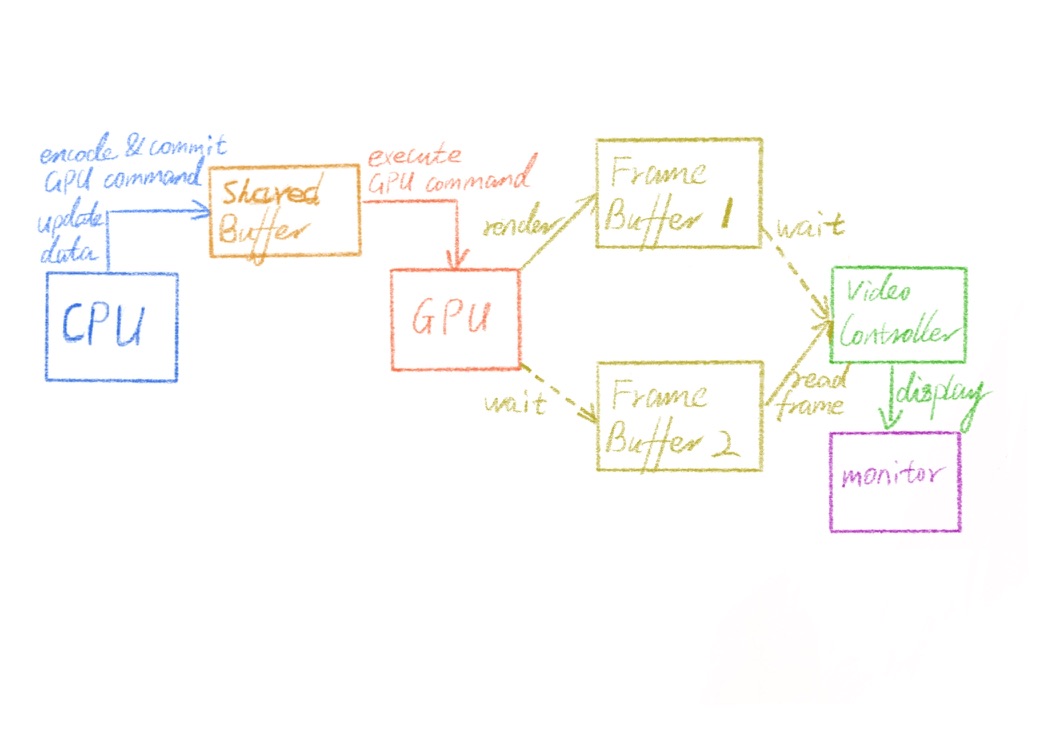 encode & commit
GPU command
update
data
CPU
Shared
Buffer
execute
GPU command
GPU
render
wait
Frame
Buffer 1
Frame
Buffer 2
wait
read
frame
Video
Controller
display
monitor